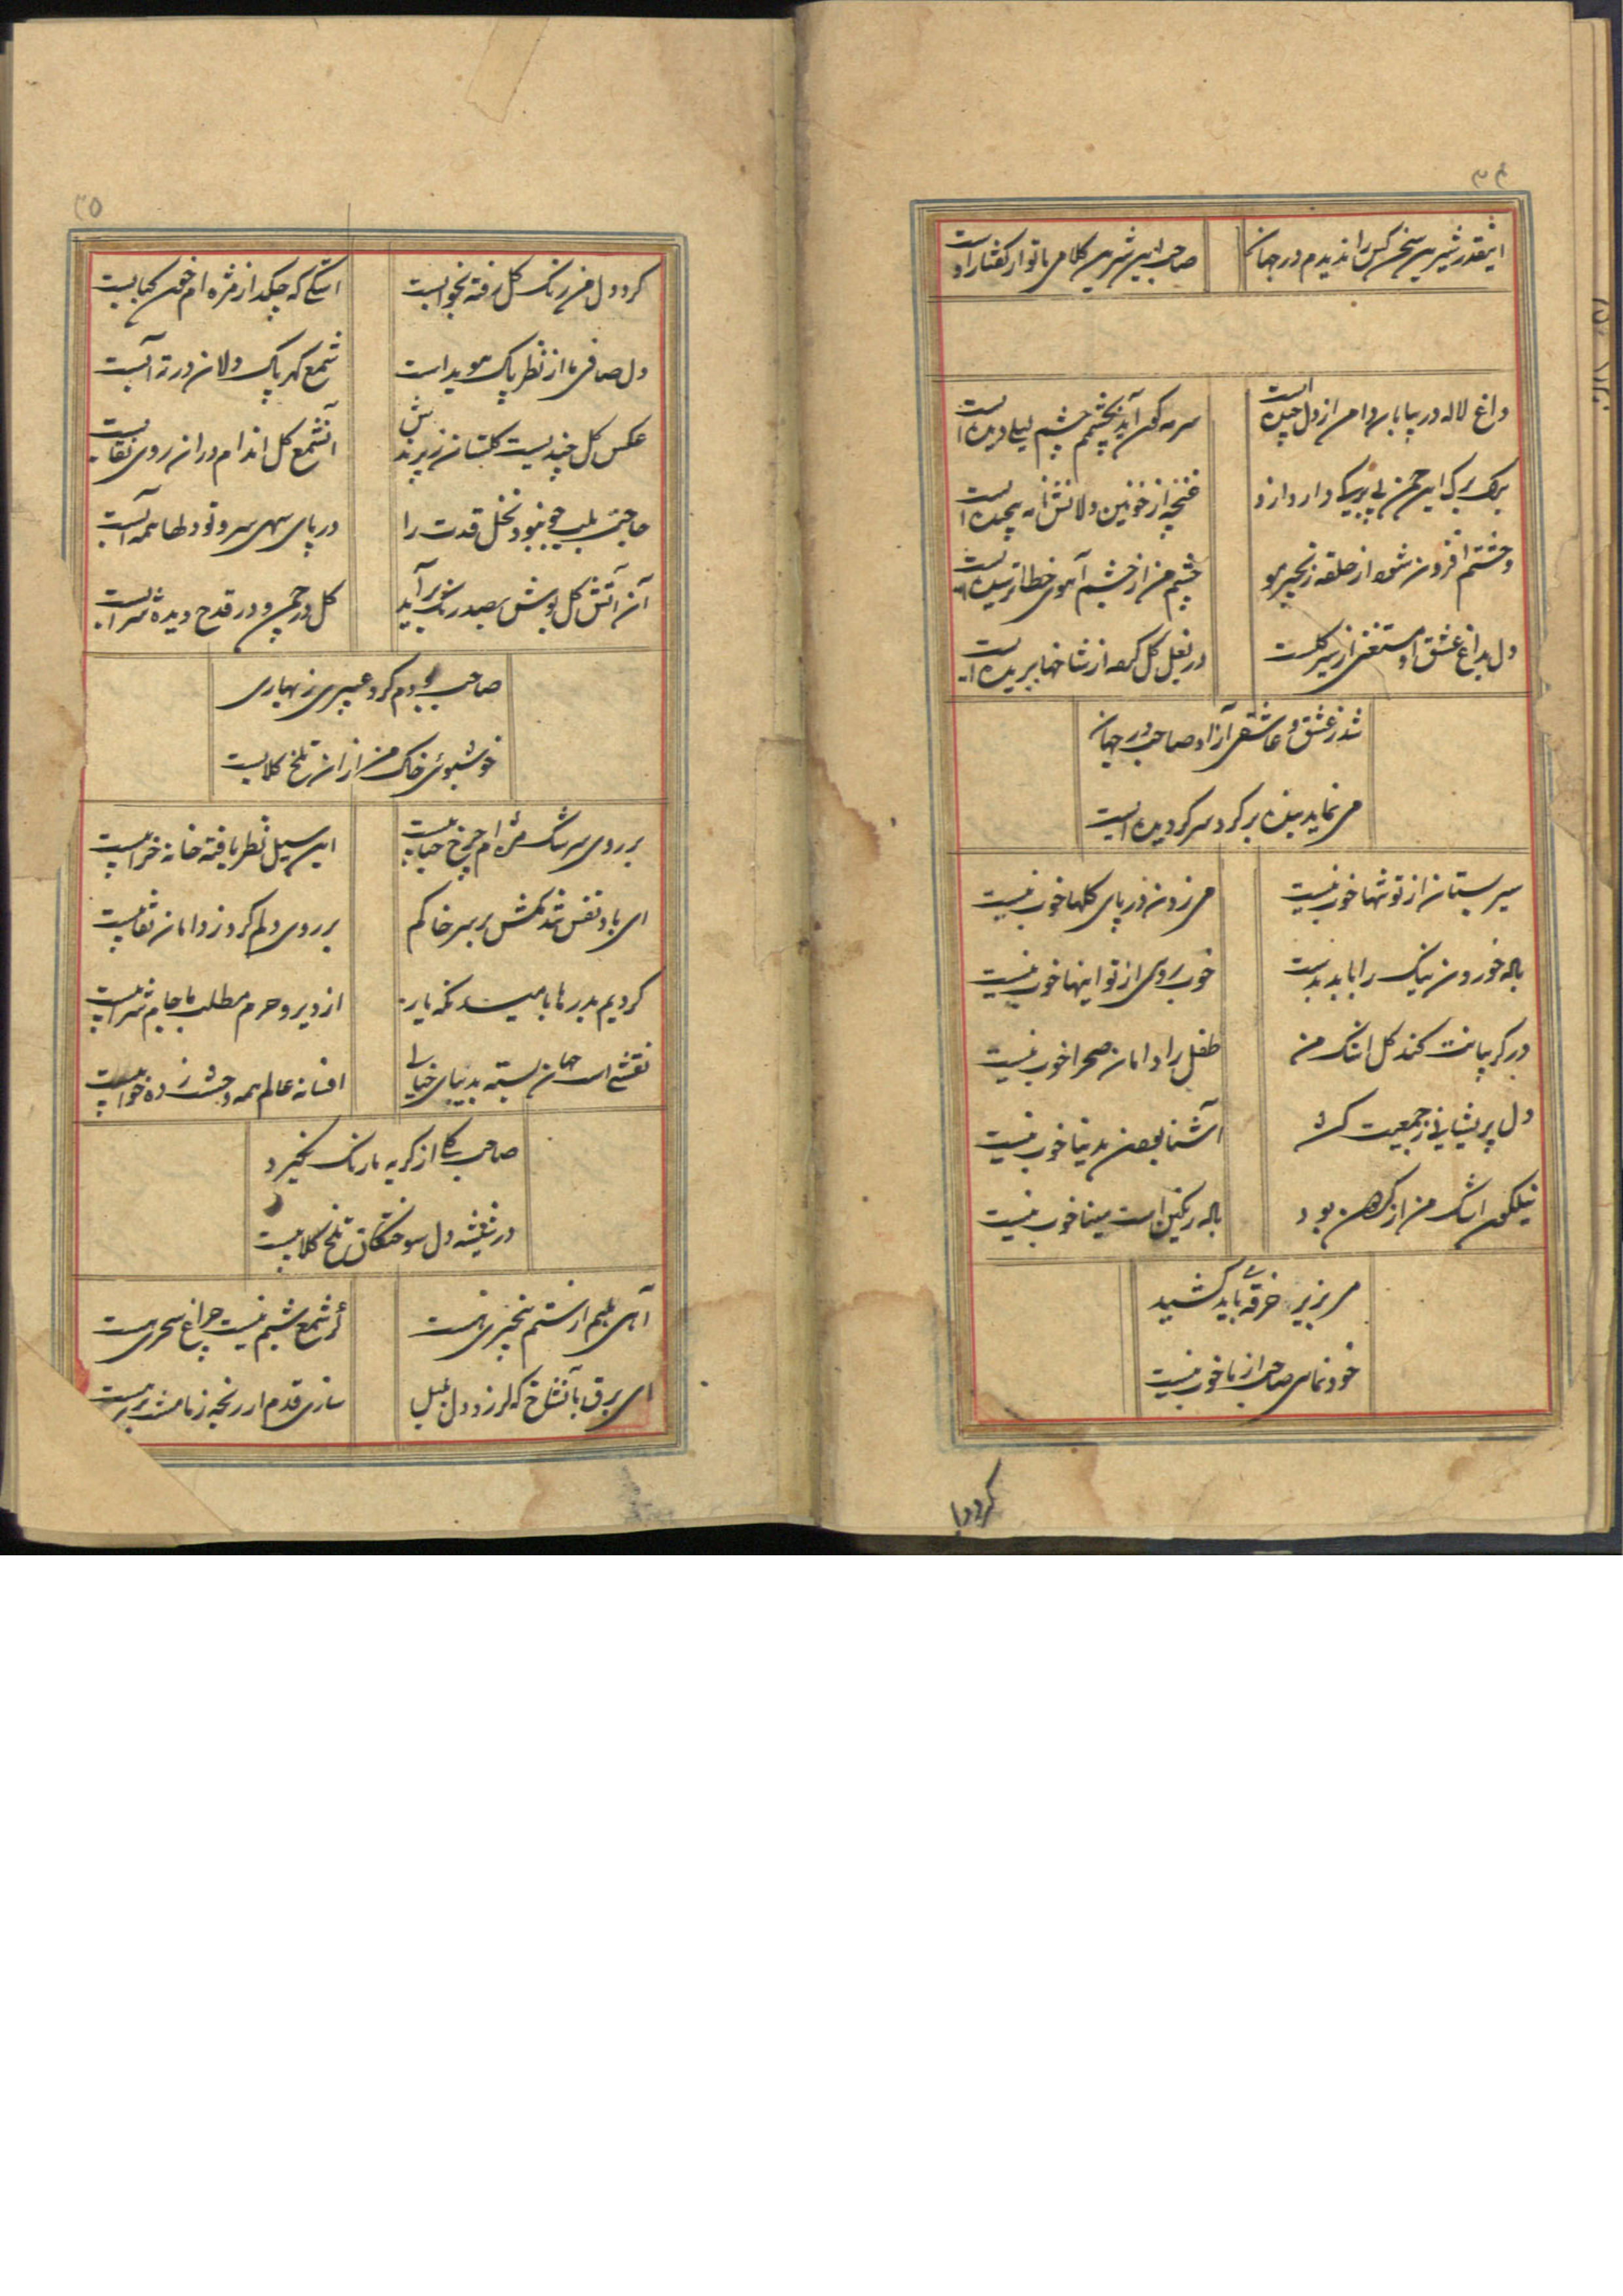 ۳۴
اینقدر شیرین سخن کس را ندیدم در جهان
صاحب این شیرین کلامی با تو از گفتار اوست
داغ لاله در بیابان دامن از دل چیده است
سرمه کون آید بچشمم چشم لیلی دیده است
برک برک این چمن بی پرده دارد از و
غنچه از خونین دلانش نامه پیچیده است
وحشتم افزون شود از حلقه زنجیر مو
چشم من از چشم آهوی خطا ترسیده است
دل بداغ عشق او مستغنی از سیر کلست
در بغل کل کرده از شاخها بریده است
شد ز عشق و عاشقی آزاد صاحب در جهان
می نماید بنده بر کرد سر کردیده است
سیر بستان از تو تنها خوب نیست
می زدن در پای کلها خوب نیست
باله خوردن نیک را با بد بدست
خوب روی از تو اینها خوب نیست
در کریبانت کند کل اشک من
طفل را دامان صحرا خوب نیست
دل پریشانی ز جمعیت کشد
آشنا بودن بدنیا خوب نیست
نیلکون اشک من از کردون بود
باله رنکین است مینا خوب نیست
می بزیر خرقه باید کشید
خودنمای صاحب از ما خوب نیست
کرد دل
۳۵
کرد دل من رنک کل رفته بخوابست
اشکی که چکد از مژه ام خون کبابست
دل صافی ما از نظر پاک هویداست
شمع کهر پاک دلان در ته آبست
عکس کل خورشیدیست کلستان زیر بندش
آن شمع کل اندام در آن روی نقابست
حاجت بلب جو نبود نخل قدت را
در پای سهی سرو تو دلها همه آبست
آن آتش کل پوش بصد رنک برآید
کل در چمن و در قدح دیده شرابست
صاحب بودم کرد عبیری ز بهاری
خوشبوئی خاک من از آن تلخ کلابست
بر روی سرشک مژه ام چرخ حبابیست
این سیل نظر یافته خانه خرابیست
ای باد نفس تند مکش بر سر خاکم
بر روی دلم کرد ز دامان نقابیست
کردیم بدرها بامید نکه یار
از دیر و حرم مطلب ما جام شرابیست
نقشی است جهان بسته بدیبای خیالی
افسانه عالم همه وحشت زده خوابیست
صاحب کل از کریه ما رنک نکیرد
در شیشه دل سوختکان تلخ کلابیست
آهی بلبم از ستم بیخبری هست
کر شمع شبم نیست چراغ سحری هست
ای برق بآن شاخ که لرزد دل بلبل